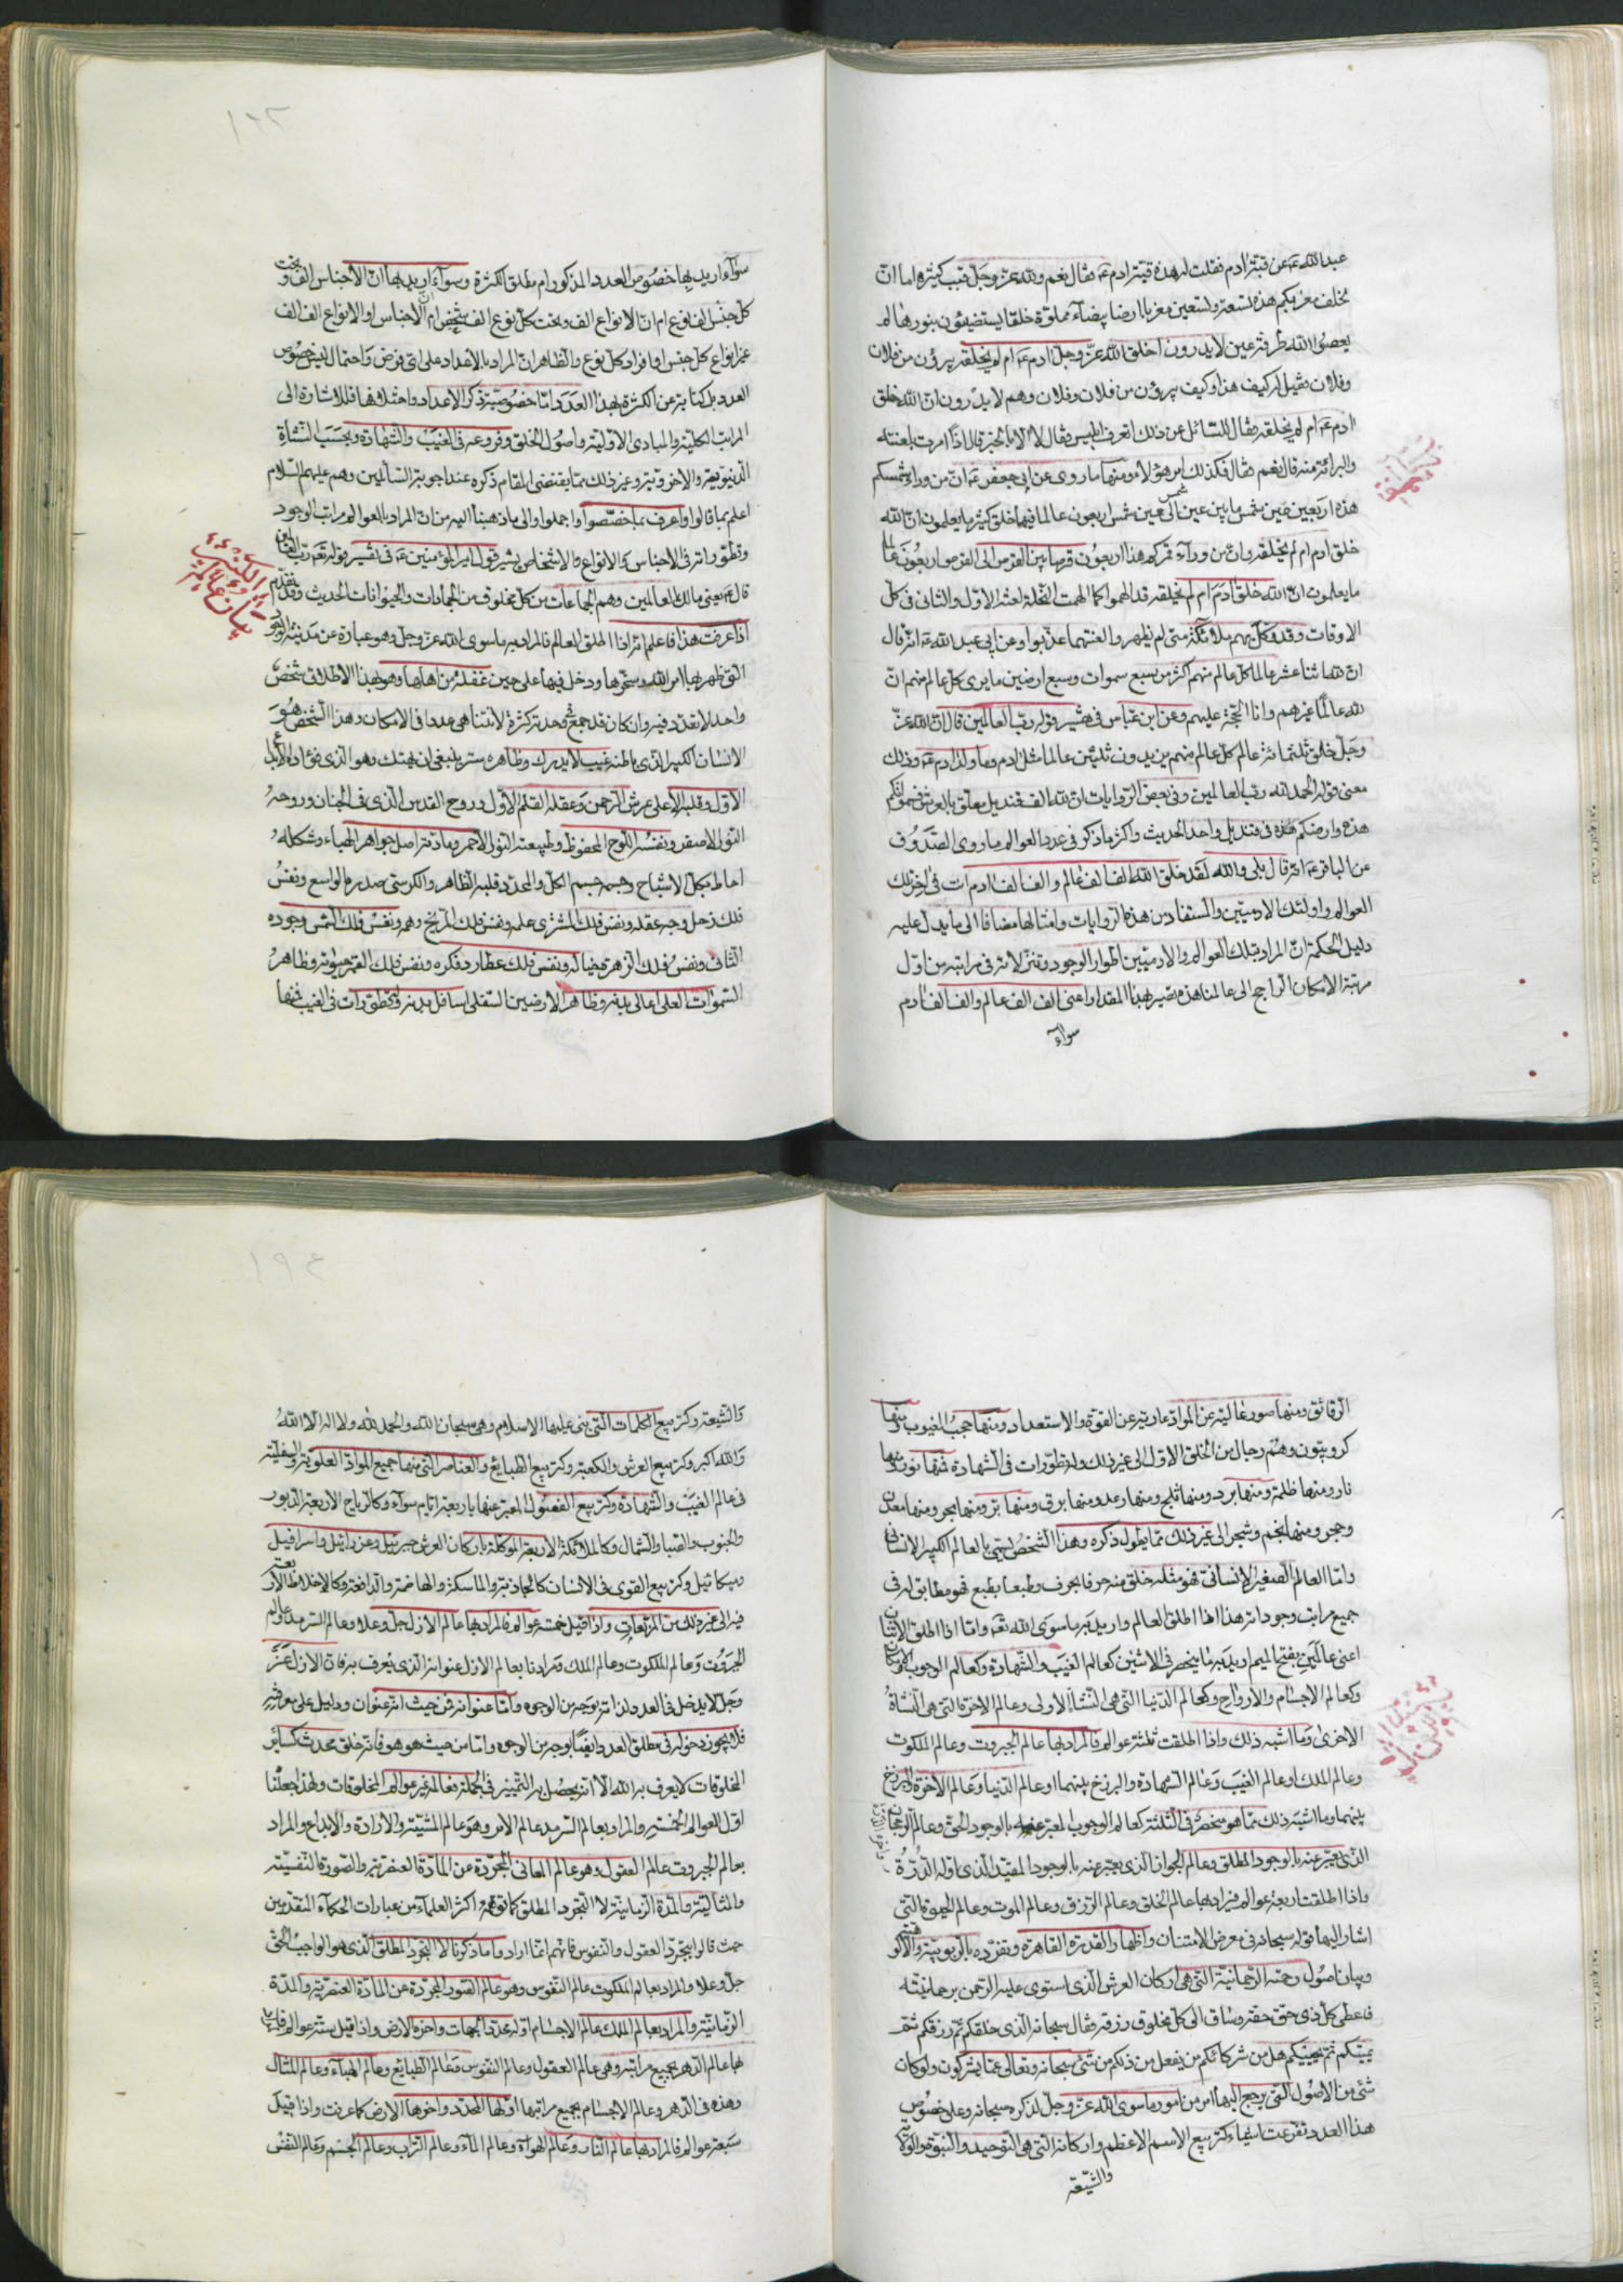 عبد الله ع‍ عن قبة ادم فقلت له هذه قبة ادم ع‍ فقال نعم ولله عز وجل قبب كثيرة اما ان
خلف مغربكم هذه تسعة وتسعين مغربا ارضا بيضاء مملوة خلقا يستضيئون بنورها لم
يعصوا الله طرفة عين لا يدرون اخلق الله عز وجل ادم ع‍ ام لم يخلقه يبرؤن من فلان
وفلان فقيل له كيف هذا وكيف يبرؤن من فلان وفلان وهم لا يدرون ان الله خلق
ادم ع‍ ام لم يخلقه فقال للسائل عن ذلك اتعرف ابليس فقال لا الا بالخبر قال اذا امرت بلعنته
والبرائة منه قال نعم فقال فكذلك امر هؤلاء ومنها ما روى عن ابي جعفر ع‍ ان من وراء شمسكم
هذه اربعين عين شمس ما بين عين شمس الى عين شمس اربعون عاما فيها خلق كثير ما يعلمون ان الله
خلق ادم ام لم يخلقه وان من وراء قمركم هذا اربعون قرصا بين القرص الى القرص اربعون عاما
ما يعلمون ان الله خلق ادم ام لم يخلقه قد الهموا كما الهمت النحلة لعنة الاول والثاني في كل
الاوقات وقد وكل بهم ملائكة متى لم يظهروا لعنتهما عذبوا وعن ابي عبد الله ع‍ انه قال
ان لله اثنا عشر عالما كل عالم منهم اكثر من سبع سموات وسبع ارضين ما يرى كل عالم منهم ان
لله عالما غيرهم وانا الحجة عليهم وعن ابن عباس في تفسير قوله رب العالمين قال ان الله عز
وجل خلق ثلثمائة عالم كل عالم منهم يزيدون ثلثين عالما مثل ادم وما ولد ادم ع‍ وذلك
معنى قوله الحمد لله رب العالمين وفى بعض الروايات ان لله الف قنديل معلق بالعرش سمواتكم
هذه وارضكم هذه في قنديل واحد الحديث واكثر ما ذكر في عدد العوالم ما روى الصدوق
عن الباقر ع‍ انه قال بلى والله لقد خلق الله الف الف عالم والف الف ادم انت في اخر تلك
العوالم واولئك الادميين والمستفاد من هذه الروايات وامثالها مضافا الى ما يدل عليه
دليل الحكمة ان المراد بتلك العوالم والادميين اطوار الوجود وتنزلاته في مراتبه من اول
مرتبة الامكان الراجح الى عالمنا هذه تصير بهذا المقدار اعنى الف الف عالم والف الف ادم
سواء
سواء اريد بها خصوص العدد المذكور ام مطلق الكثرة وسواء اريد بها ان الاجناس الف وتحت
كل جنس الف نوع ام ان الانواع الف وتحت كل نوع الف شخص ام ان الاجناس او الانواع الف الف
غير انواع كل جنس او افراد كل نوع والظاهر ان المراد بالاعداد على اى فرض واحتمال ليس خصوص
العدد بل كناية عن الكثرة بهذا العدد واما خصوصية ذكر الاعداد واختلافها فللاشارة الى
المراتب الكلية والمبادى الاولية واصول الخلق وفروعه في الغيب والشهادة وبحسب النشاة
الدنيوية والاخروية وغير ذلك مما يقتضى المقام ذكره عند اجوبة السائلين وهم عليهم السلام
اعلم بما قالوا واعرف بما خصصوا واجملوا والى ما ذهبنا اليه من ان المراد بالعوالم مراتب الوجود
وتطوراته في الاجناس والانواع والاشخاص يشير قول امير المؤمنين ع‍ في تفسير قوله تع‍ رب العالمين
قال ع‍ يعنى مالك العالمين وهم الجماعات من كل مخلوق من الجمادات والحيوانات الحديث وقد تقدم
بيان عالم الكبير
اذا عرفت هذا فاعلم انه اذا اطلق العالم فالمراد به ما سوى الله عز وجل وهو عبارة عن مدينة الوجود
التى ظهر بها امر الله وسخرها ودخل فيها على حين غفلة من اهلها وهو بهذا الاطلاق شخص
واحد لا تعدد فيه وان كان قد جمع في وحدته كثرة لا تتناهى عددا في الامكان وهذا الشخص هو
الانسان الكبير الذى باطنه غيب لا يدرك وظاهره ستر لا ينبغى ان يهتك وهو الذى فؤاده الابداع
الاول وقلبه الاعلى عرش الرحمن وعقله القلم الاول وروح القدس الذى في الجنان وروحه
النور الاصفر ونفسه اللوح المحفوظ وطبيعته النور الاحمر ومادته اصل جواهر الهباء وشكله
احاط بكل الاشباح وجسمه جسم الكل والمحدد قلبه الظاهر والكرسى صدره الواسع ونفس
فلك زحل وجه عقله ونفس فلك المشترى علمه ونفس فلك المريخ وهمه ونفس فلك الشمس وجوده
الثانى ونفس فلك الزهرة خياله ونفس فلك عطارد فكره ونفس فلك القمر حيوته وظاهر
السموات العلى اعالى بدنه وظاهر الارضين السفلى اسافل بدنه وله تطورات في الغيب فمنها
الرقائق ومنها صور عالية عن المواد عارية عن القوة والاستعداد ومنها حجب الغيوب ومنها
كروبيون وهم رجال من الخلق الاول الى غير ذلك وله تطورات في الشهادة فمنها نور ومنها
نار ومنها ظلمة ومنها برد ومنها ثلج ومنها رعد ومنها برق ومنها بر ومنها بحر ومنها معدن
وحجر ومنها نجم وشجر الى غير ذلك مما يطول ذكره وهذا الشخص يسمى بالعالم الكبير الانسانى
واما العالم الصغير الانسانى فهو مثله خلق منه حرفا بحرف وطبعا بطبع فهو مطابق له في
جميع مراتب وجوداته هذا اذا اطلق العالم واريد به ما سوى الله تع‍ واما اذا اطلق الاثنان
اعنى عالمين بفتح الميم اريد به ما ينحصر في الاثنين كعالم الغيب والشهادة وكعالم الوجوب والامكان
وكعالم الاجسام والارواح وكعالم الدنيا التى هى النشاة الاولى وعالم الاخرة التى هى النشاة
الاخرى وما اشبه ذلك واذا اطلقت ثلثة عوالم فالمراد بها عالم الجبروت وعالم الملكوت
وعالم الملك او عالم الغيب وعالم الشهادة والبرزخ بينهما او عالم الدنيا وعالم الاخرة والبرزخ
بينهما وما اشبه ذلك مما هو منحصر في الثلثة كعالم الوجوب المعبر عنه بالوجود الحق وعالم الرجحان
الذى يعبر عنه بالوجود المطلق وعالم الجواز الذى يعبر عنه بالوجود المقيد الذى اوله الدرة
واذا اطلقت اربعة عوالم فيراد بها عالم الخلق وعالم الرزق وعالم الموت وعالم الحيوة التى
اشار اليها قوله سبحانه في معرض الامتنان واظهار القدرة القاهرة وتفرده بالربوبية والالوهية
وبيان اصول رحمته الرحمانية التى هى اركان العرش الذى استوى عليه الرحمن برحمانيته
فاعطى كل ذى حق حقه وساق الى كل مخلوق رزقه فقال سبحانه الذى خلقكم ثم رزقكم ثم
يميتكم ثم يحييكم هل من شركائكم من يفعل من ذلكم من شئ سبحانه وتعالى عما يشركون ولو كان
شئ من الاصول التى يرجع اليها امر من امور ما سوى الله عز وجل لذكره سبحانه وعلى خصوص
هذا العدد تفرعت اشياء كتربيع الاسم الاعظم واركانه التى هى التوحيد والنبوة والولاية
والشيعة
والشيعة وكتربيع الكلمات التى بنى عليها الاسلام وهى سبحان الله والحمد لله ولا اله الا الله
والله اكبر وكتربيع العرش والكعبة وكتربيع الطبايع والعناصر التى منها جميع المواد العلوية والسفلية
في عالم الغيب والشهادة وكتربيع الفصول المعبر عنها باربعة ايام سواء وكالرياح الاربعة الدبور
والجنوب والصبا والشمال وكالملائكة الاربعة الموكلة باركان العرش جبرئيل وعزرائيل واسرافيل
وميكائيل وكتربيع القوى في الانسان كالجاذبة والماسكة والهاضمة والدافعة وكالاخلاط الاربعة
فيه الى غير ذلك من المربعات واذا قيل خمسة عوالم فالمراد بها عالم الازل جل وعلا وعالم السرمد وعالم
الجبروت وعالم الملكوت وعالم الملك ومرادنا بعالم الازل عنوانه الذى يعرف به فان الازل عز
وجل لا يدخل في العدد لذاته بوجه من الوجوه واما عنوانه فمن حيث انه عنوان ودليل على معرفته
فلا يجوز دخوله في مطلق العدد ايضا بوجه من الوجوه واما من حيث هو هو فانه خلق محدث كسائر
المخلوقات لا يعرف به الله الا انه يحصل به التمييز في الجملة فعالمه غير عوالم المخلوقات ولهذا جعلنا
اول العوالم الخمسة والمراد بعالم السرمد عالم الامر وهو عالم المشية والارادة والابداع والمراد
بعالم الجبروت عالم العقول وهو عالم المعانى المجردة عن المادة العنصرية والصورة النفسية
والمثالية والمدة الزمانية لا التجرد المطلق كما توهمه اكثر العلماء من عبارات الحكماء المتقدمين
حيث قالوا بتجرد العقول والنفوس فانهم انما ارادوا ما ذكرنا لا التجرد المطلق الذى هو الواجب الحق
جل وعلا والمراد بعالم الملكوت عالم النفوس وهو عالم الصور المجردة عن المادة العنصرية والمدة
الزمانية والمراد بعالم الملك عالم الاجسام اوله محدد الجهات واخره الارض واذا قيل ستة عوالم فالمراد
بها عالم الدهر بجميع مراتبه وهى عالم العقول وعالم النفوس وعالم الطبايع وعالم الهباء وعالم المثال
وهذه في الدهر وعالم الاجسام بجميع مراتبها اولها المحدد واخرها الارض كما عرفت واذا قيل
سبعة عوالم فالمراد بها عالم النار وعالم الهواء وعالم الماء وعالم التراب وعالم الجسم وعالم النفس